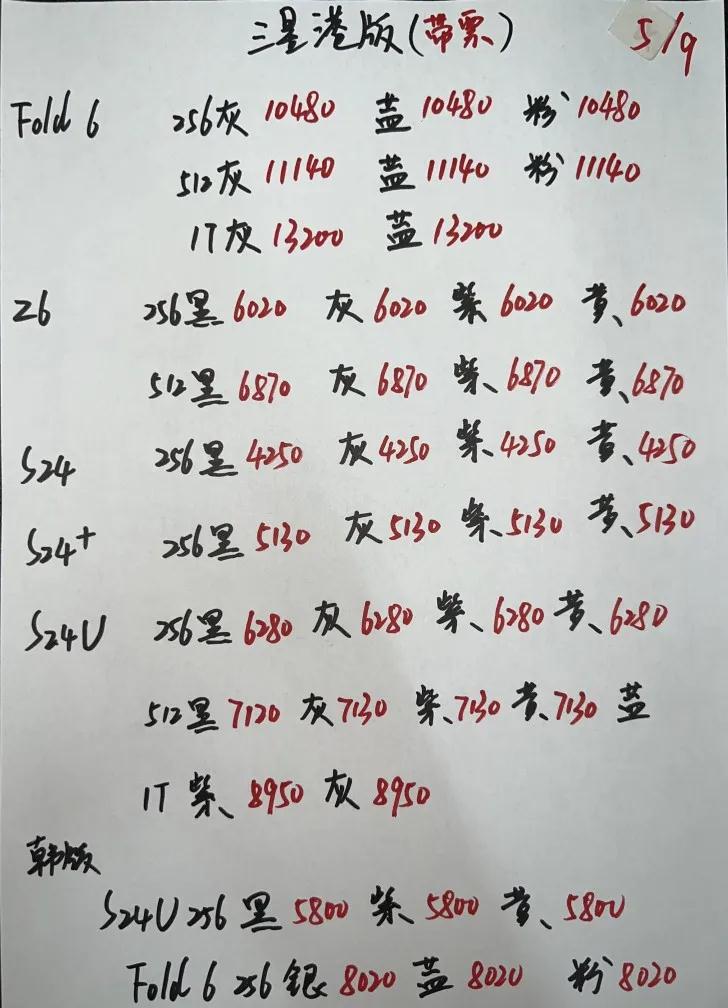 三星港版(带票) 5/9
Fold 6 256灰 10480 蓝 10480 粉 10480
512灰 11140 蓝 11140 粉 11140
1T灰 13200 蓝 13200
Z6 256黑 6020 灰 6020 紫 6020 黄 6020
512黑 6870 灰 6870 紫 6870 黄 6870
S24 256黑 4250 灰 4250 紫 4250 黄 4250
S24+ 256黑 5130 灰 5130 紫 5130 黄 5130
S24U 256黑 6280 灰 6280 紫 6280 黄 6280
512黑 7120 灰 7130 紫 7130 黄 7130 蓝
1T 紫 8950 灰 8950
韩版
S24U 256 黑 5800 紫 5800 黄 5800
Fold 6 256 银 8020 蓝 8020 粉 8020